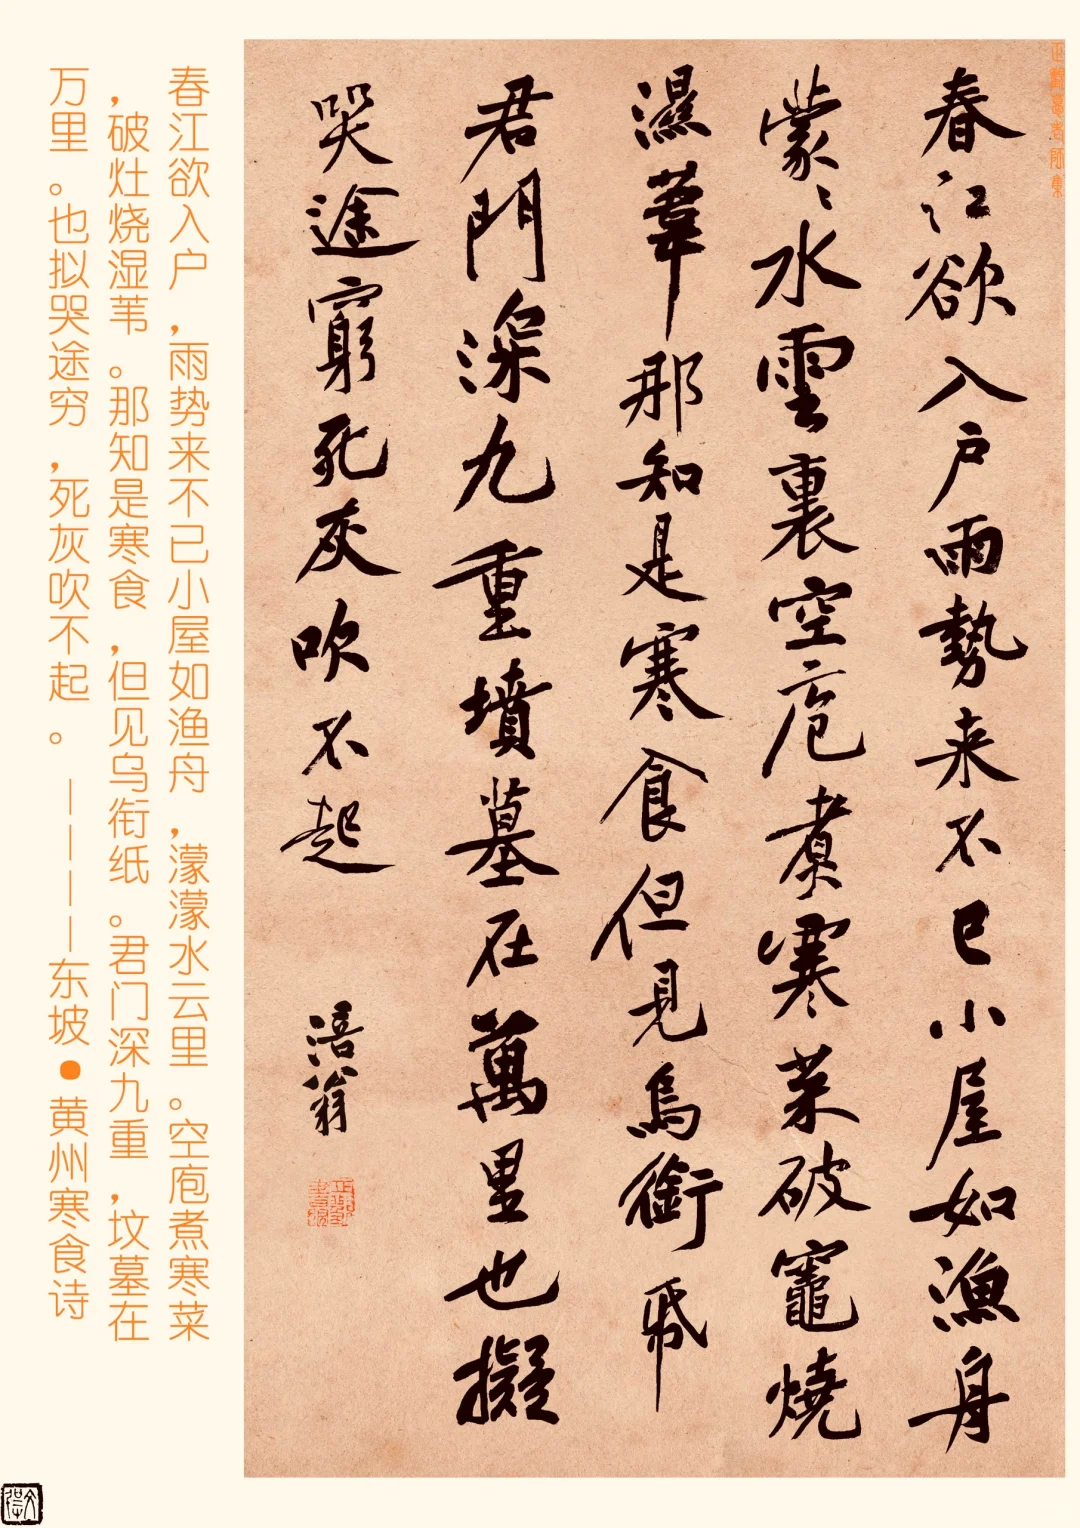 春江欲入戶雨勢来不已小屋如漁舟
蒙〻水雲裏空庖煮寒菜破竈燒
濕葦那知是寒食但見烏銜帋
君門深九重墳墓在萬里也擬
哭途窮死灰吹不起
涪翁
春江欲入户，雨势来不已小屋如渔舟，濛濛水云里。空庖煮寒菜
，破灶烧湿苇。那知是寒食，但见乌衔纸。君门深九重，坟墓在
万里。也拟哭途穷，死灰吹不起。————东坡•黄州寒食诗